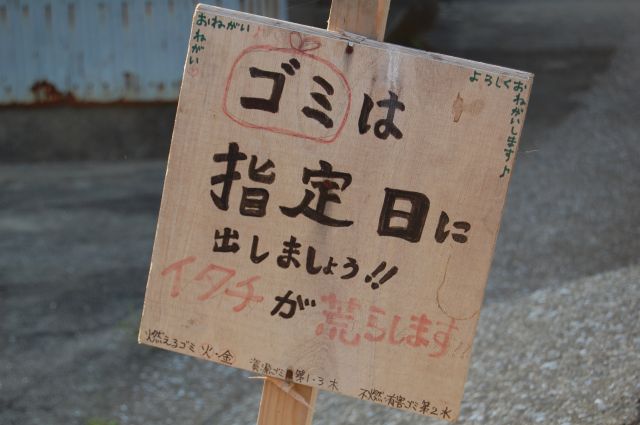 おねがい
おねがい♡
よろしくおねがいします♪
ゴミは
指定日に
出しましょう!!
イタチが荒らします
燃えるゴミ 火・金
資源ゴミ 第1・3木
不燃・有害ゴミ 第2水